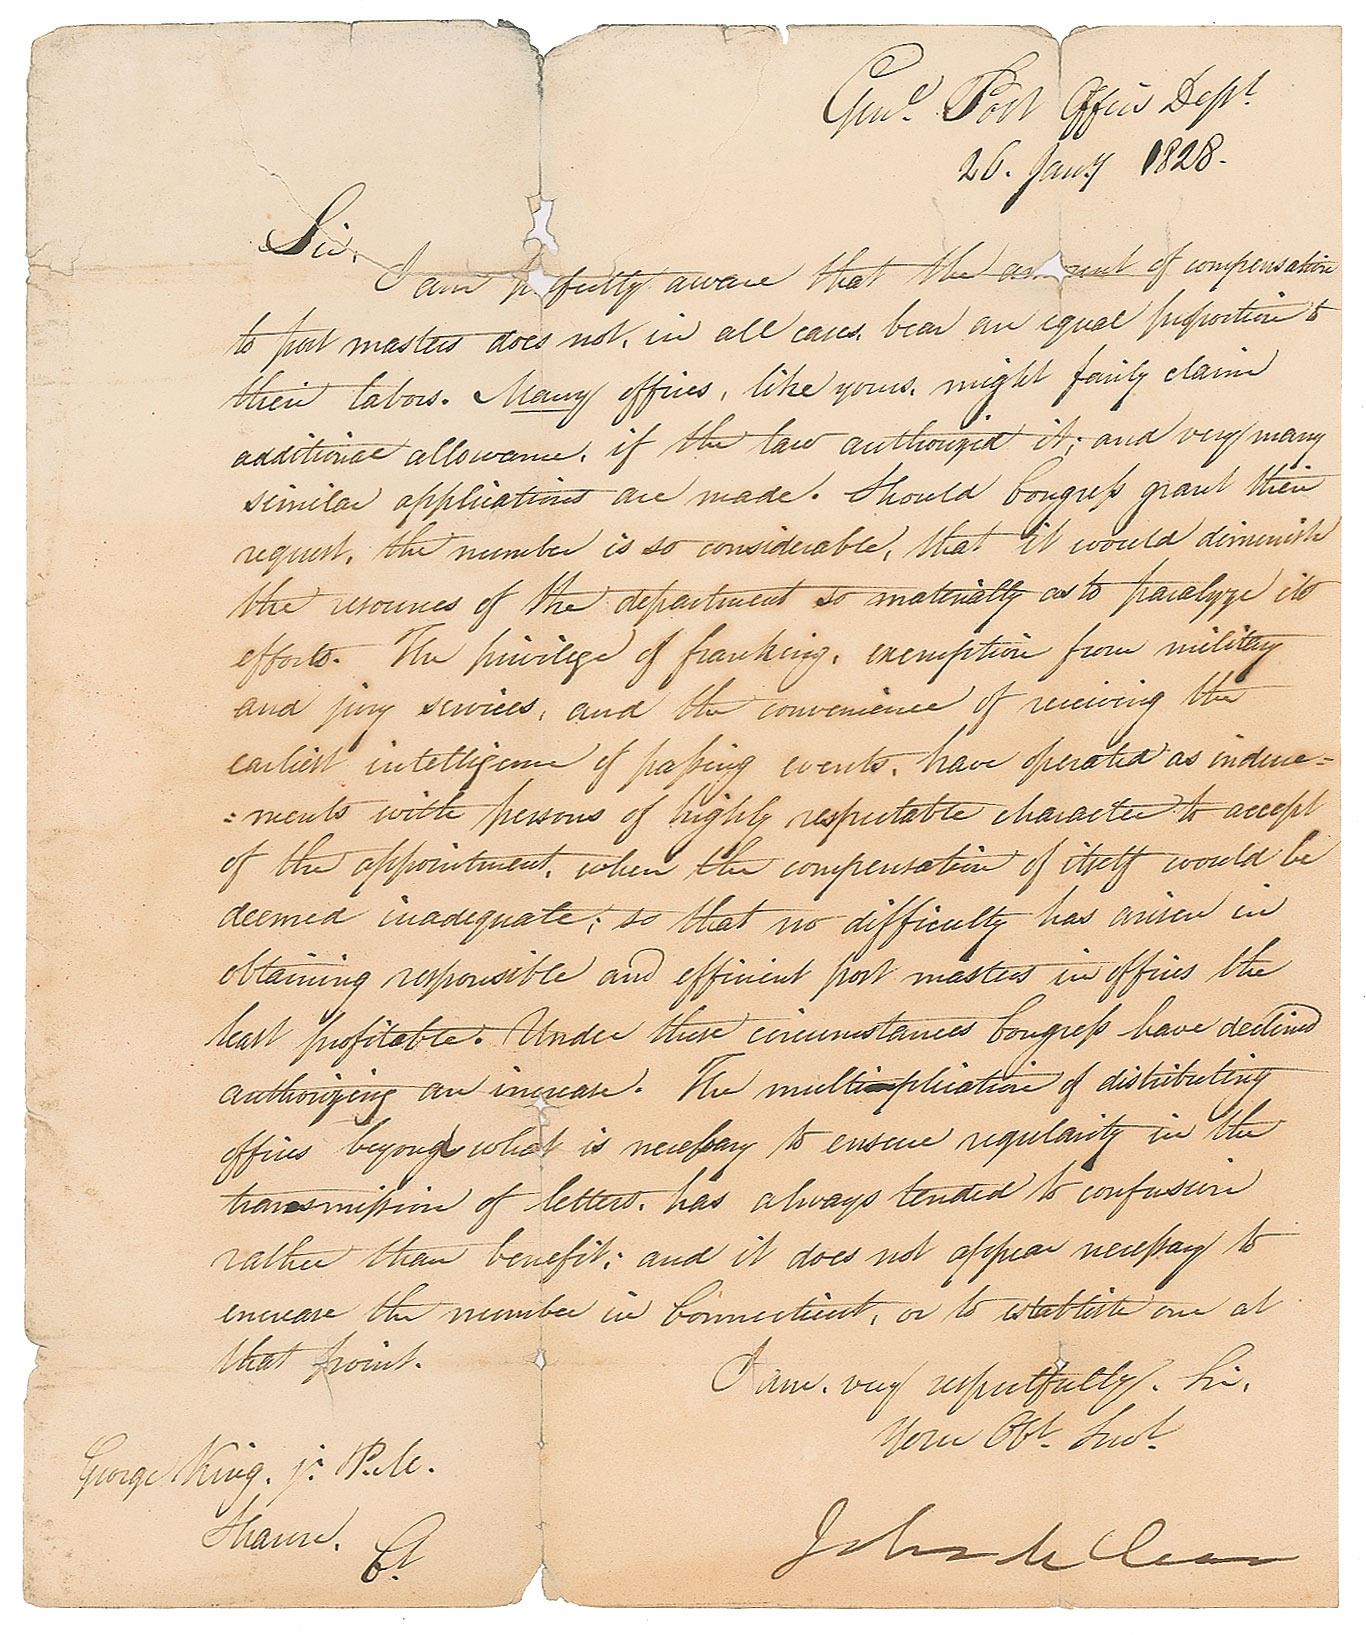 Genl. Post Office Dept.
26. Jany 1828.
Sir,
I am perfectly aware that the amount of compensation
to post masters does not, in all cases, bear an equal proportion to
their labors. Many offices, like yours, might fairly claim
additional allowance, if the law authorized it; and very many
similar applications are made. Should Congress grant their
request, the number is so considerable, that it would diminish
the resources of the department so materially as to paralyze its
efforts. The privilege of franking, exemption from military
and jury services, and the convenience of receiving the
earliest intelligence of passing events, have operated as induce=
=ments with persons of highly respectable character to accept
of the appointment, when the compensation of itself would be
deemed inadequate; so that no difficulty has arisen in
obtaining responsible and efficient post masters in offices the
least profitable. Under these circumstances Congress have declined
authorizing an increase. The multiplication of distributing
offices beyond what is necessary to ensure regularity in the
transmission of letters, has always tended to confusion
rather than benefit; and it does not appear necessary to
increase the number in Connecticut, or to establish one at
that point.
I am, very respectfully, Sir,
Your Obt. Servt.
John McLean
George King. jr. P.M.
Sharon.
Ct.